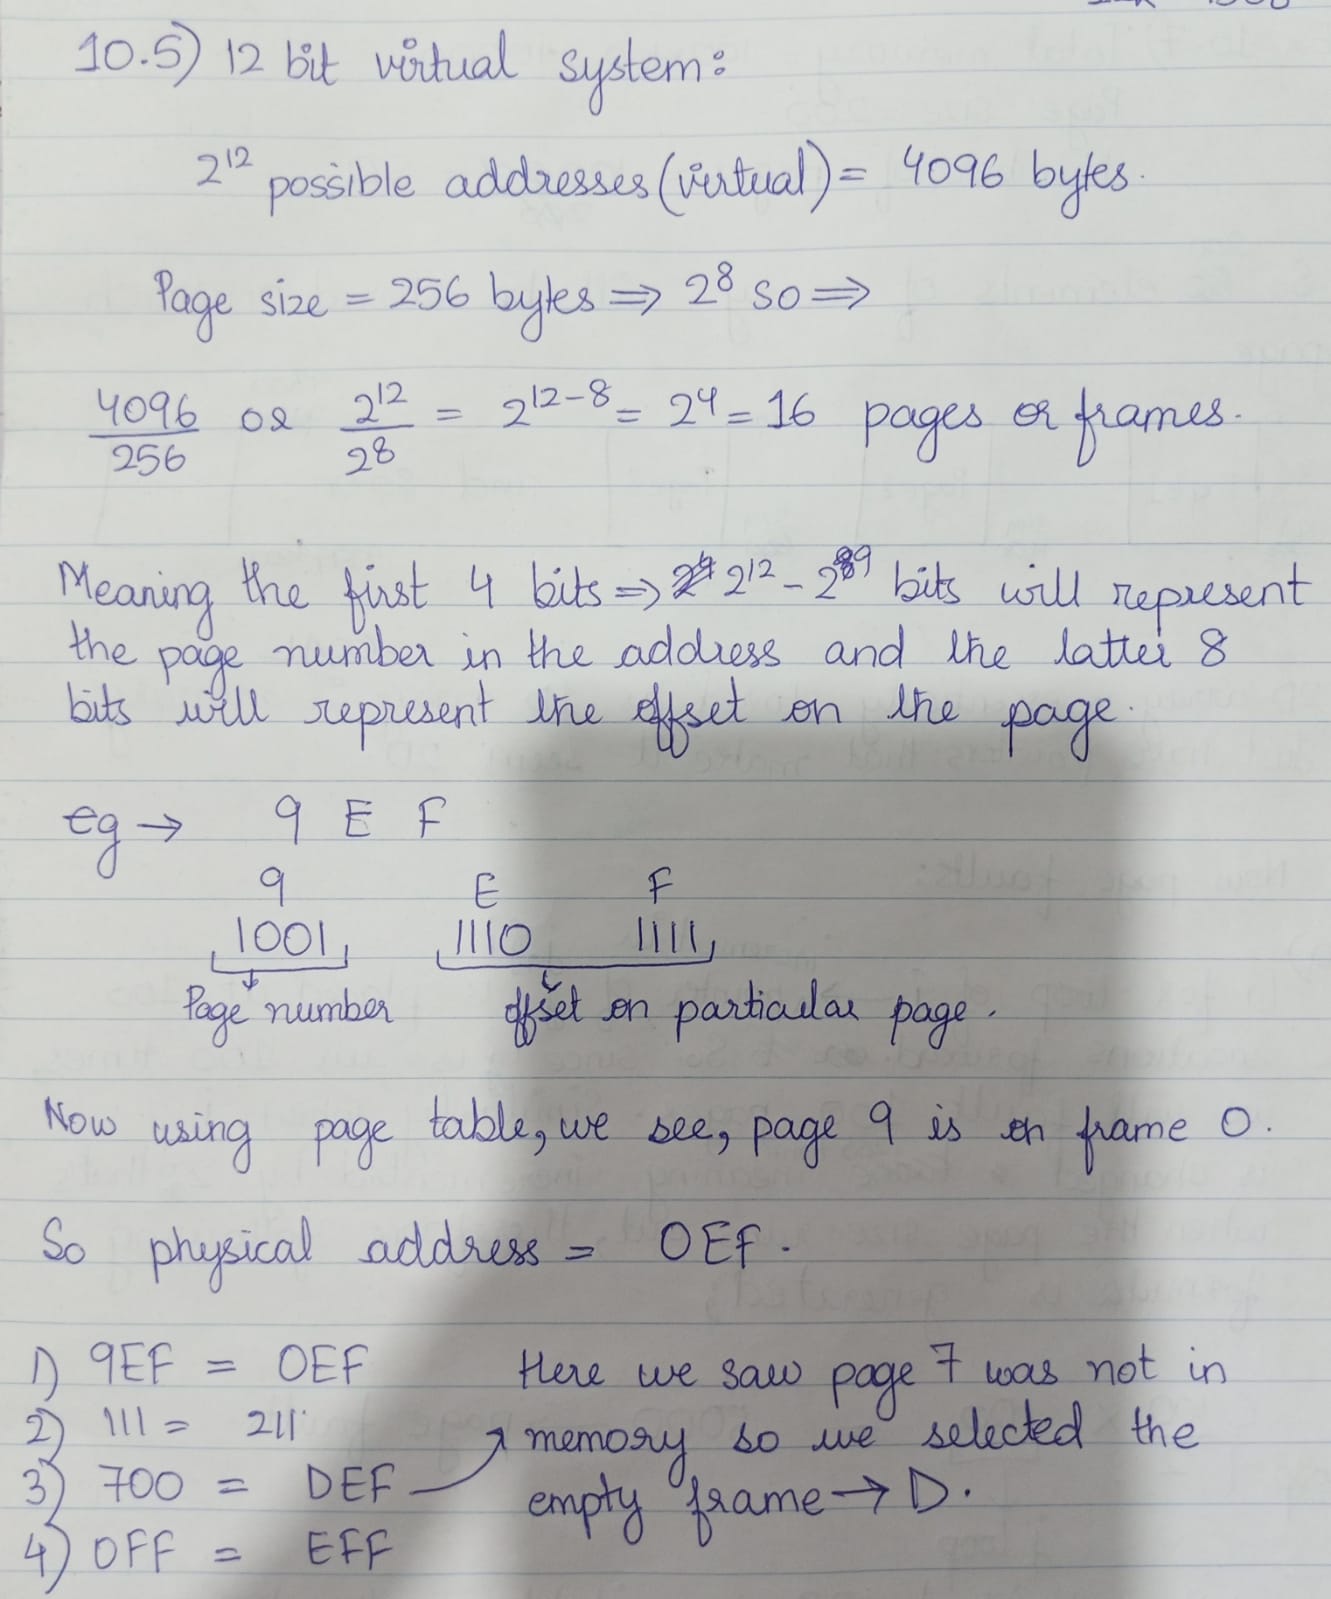 10.5) 12 bit virtual system:
2^12 possible addresses (virtual) = 4096 bytes.
Page size = 256 bytes ⇒ 2^8 so ⇒
4096/256 or 2^12/2^8 = 2^12-8 = 2^4 = 16 pages or frames.
Meaning the first 4 bits ⇒ 2^12 - 2^9 bits will represent
the page number in the address and the latter 8
bits will represent the offset on the page.
eg → 9 E F
9 E F
1001 1110 1111
Page number offset on particular page.
Now using page table, we see, page 9 is on frame 0.
So physical address = 0EF.
1) 9EF = 0EF Here we saw page 7 was not in
2) 111 = 211 memory so we selected the
3) 700 = DEF empty frame → D.
4) 0FF = EFF